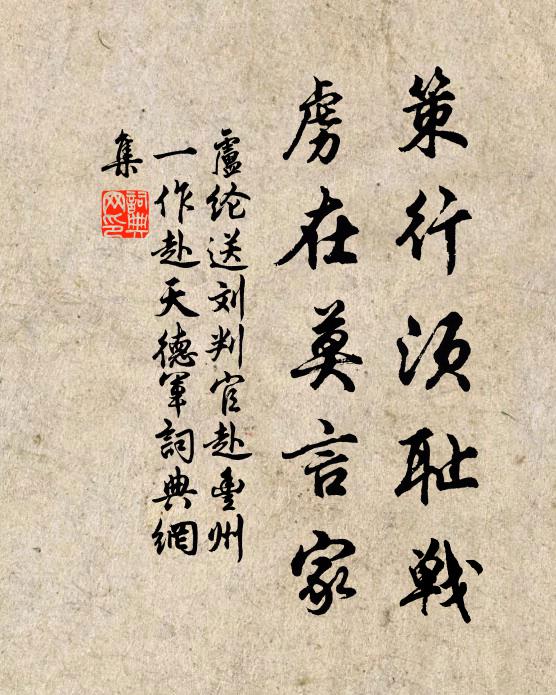 策行须耻戦
虏在莫言家
盧纶送刘判官赴豊州
一作赴天德军詞典網
集
詞典網印